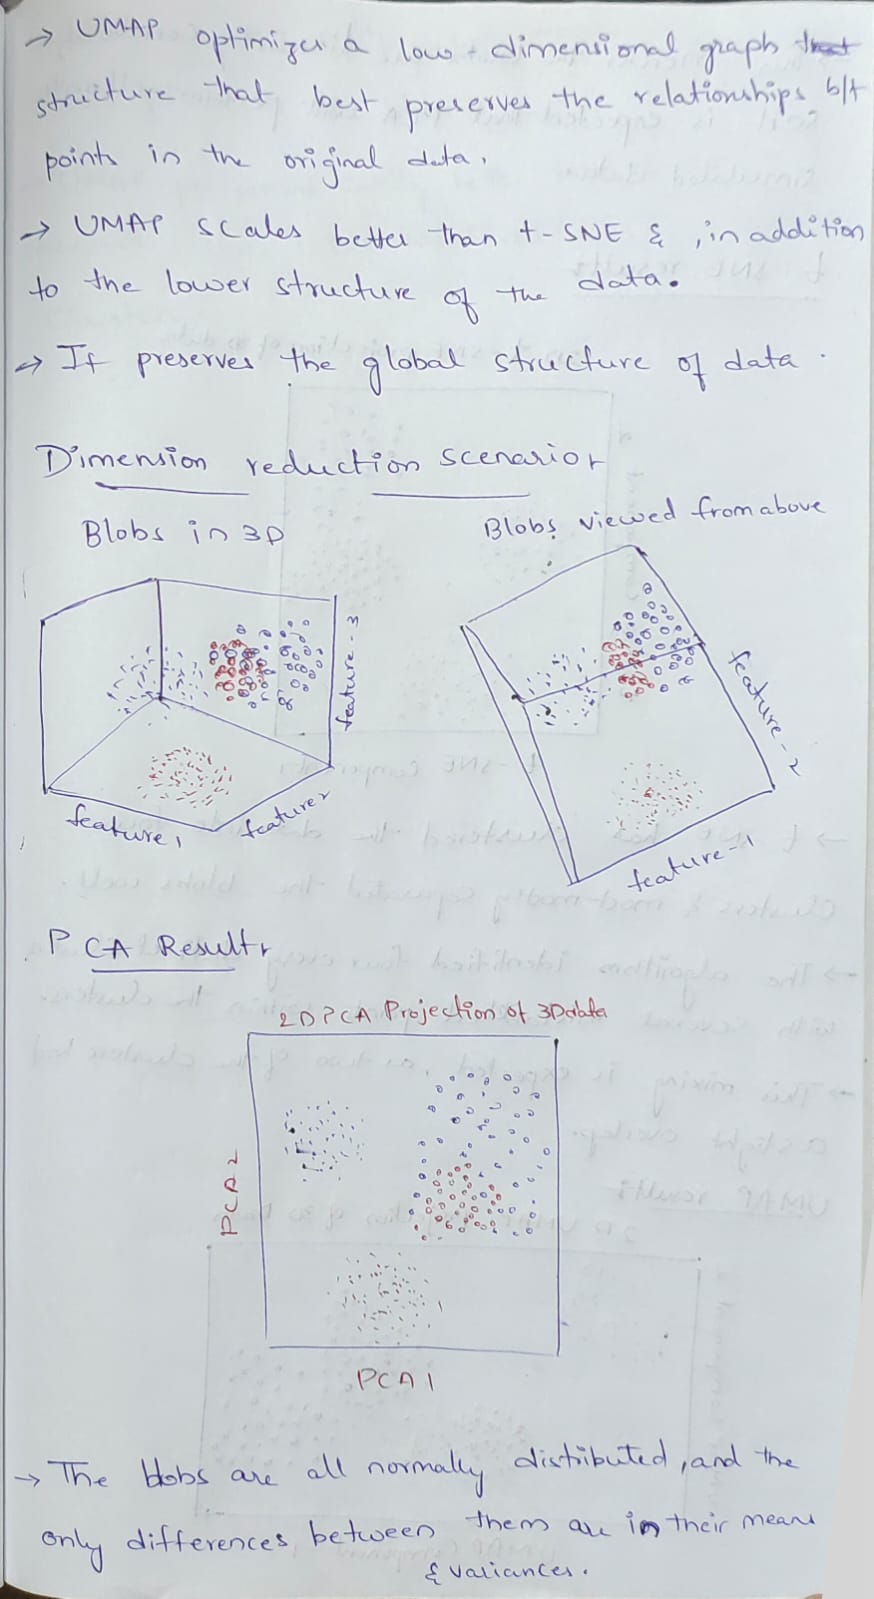 → UMAP optimizes a low-dimensional graph
structure that best preserves the relationships b/t
points in the original data.
→ UMAP scales better than t-SNE & , in addition
to the lower structure of the data.
→ It preserves the global structure of data.
Dimension reduction scenarios
Blobs in 3D
Blobs viewed from above
feature-3
feature-2
feature 1
feature 2
feature-1
PCA Results
2D PCA Projection of 3D data
PCA 2
PCA 1
→ The blobs are all normally distributed, and the
only differences between them are in their means
& variances.